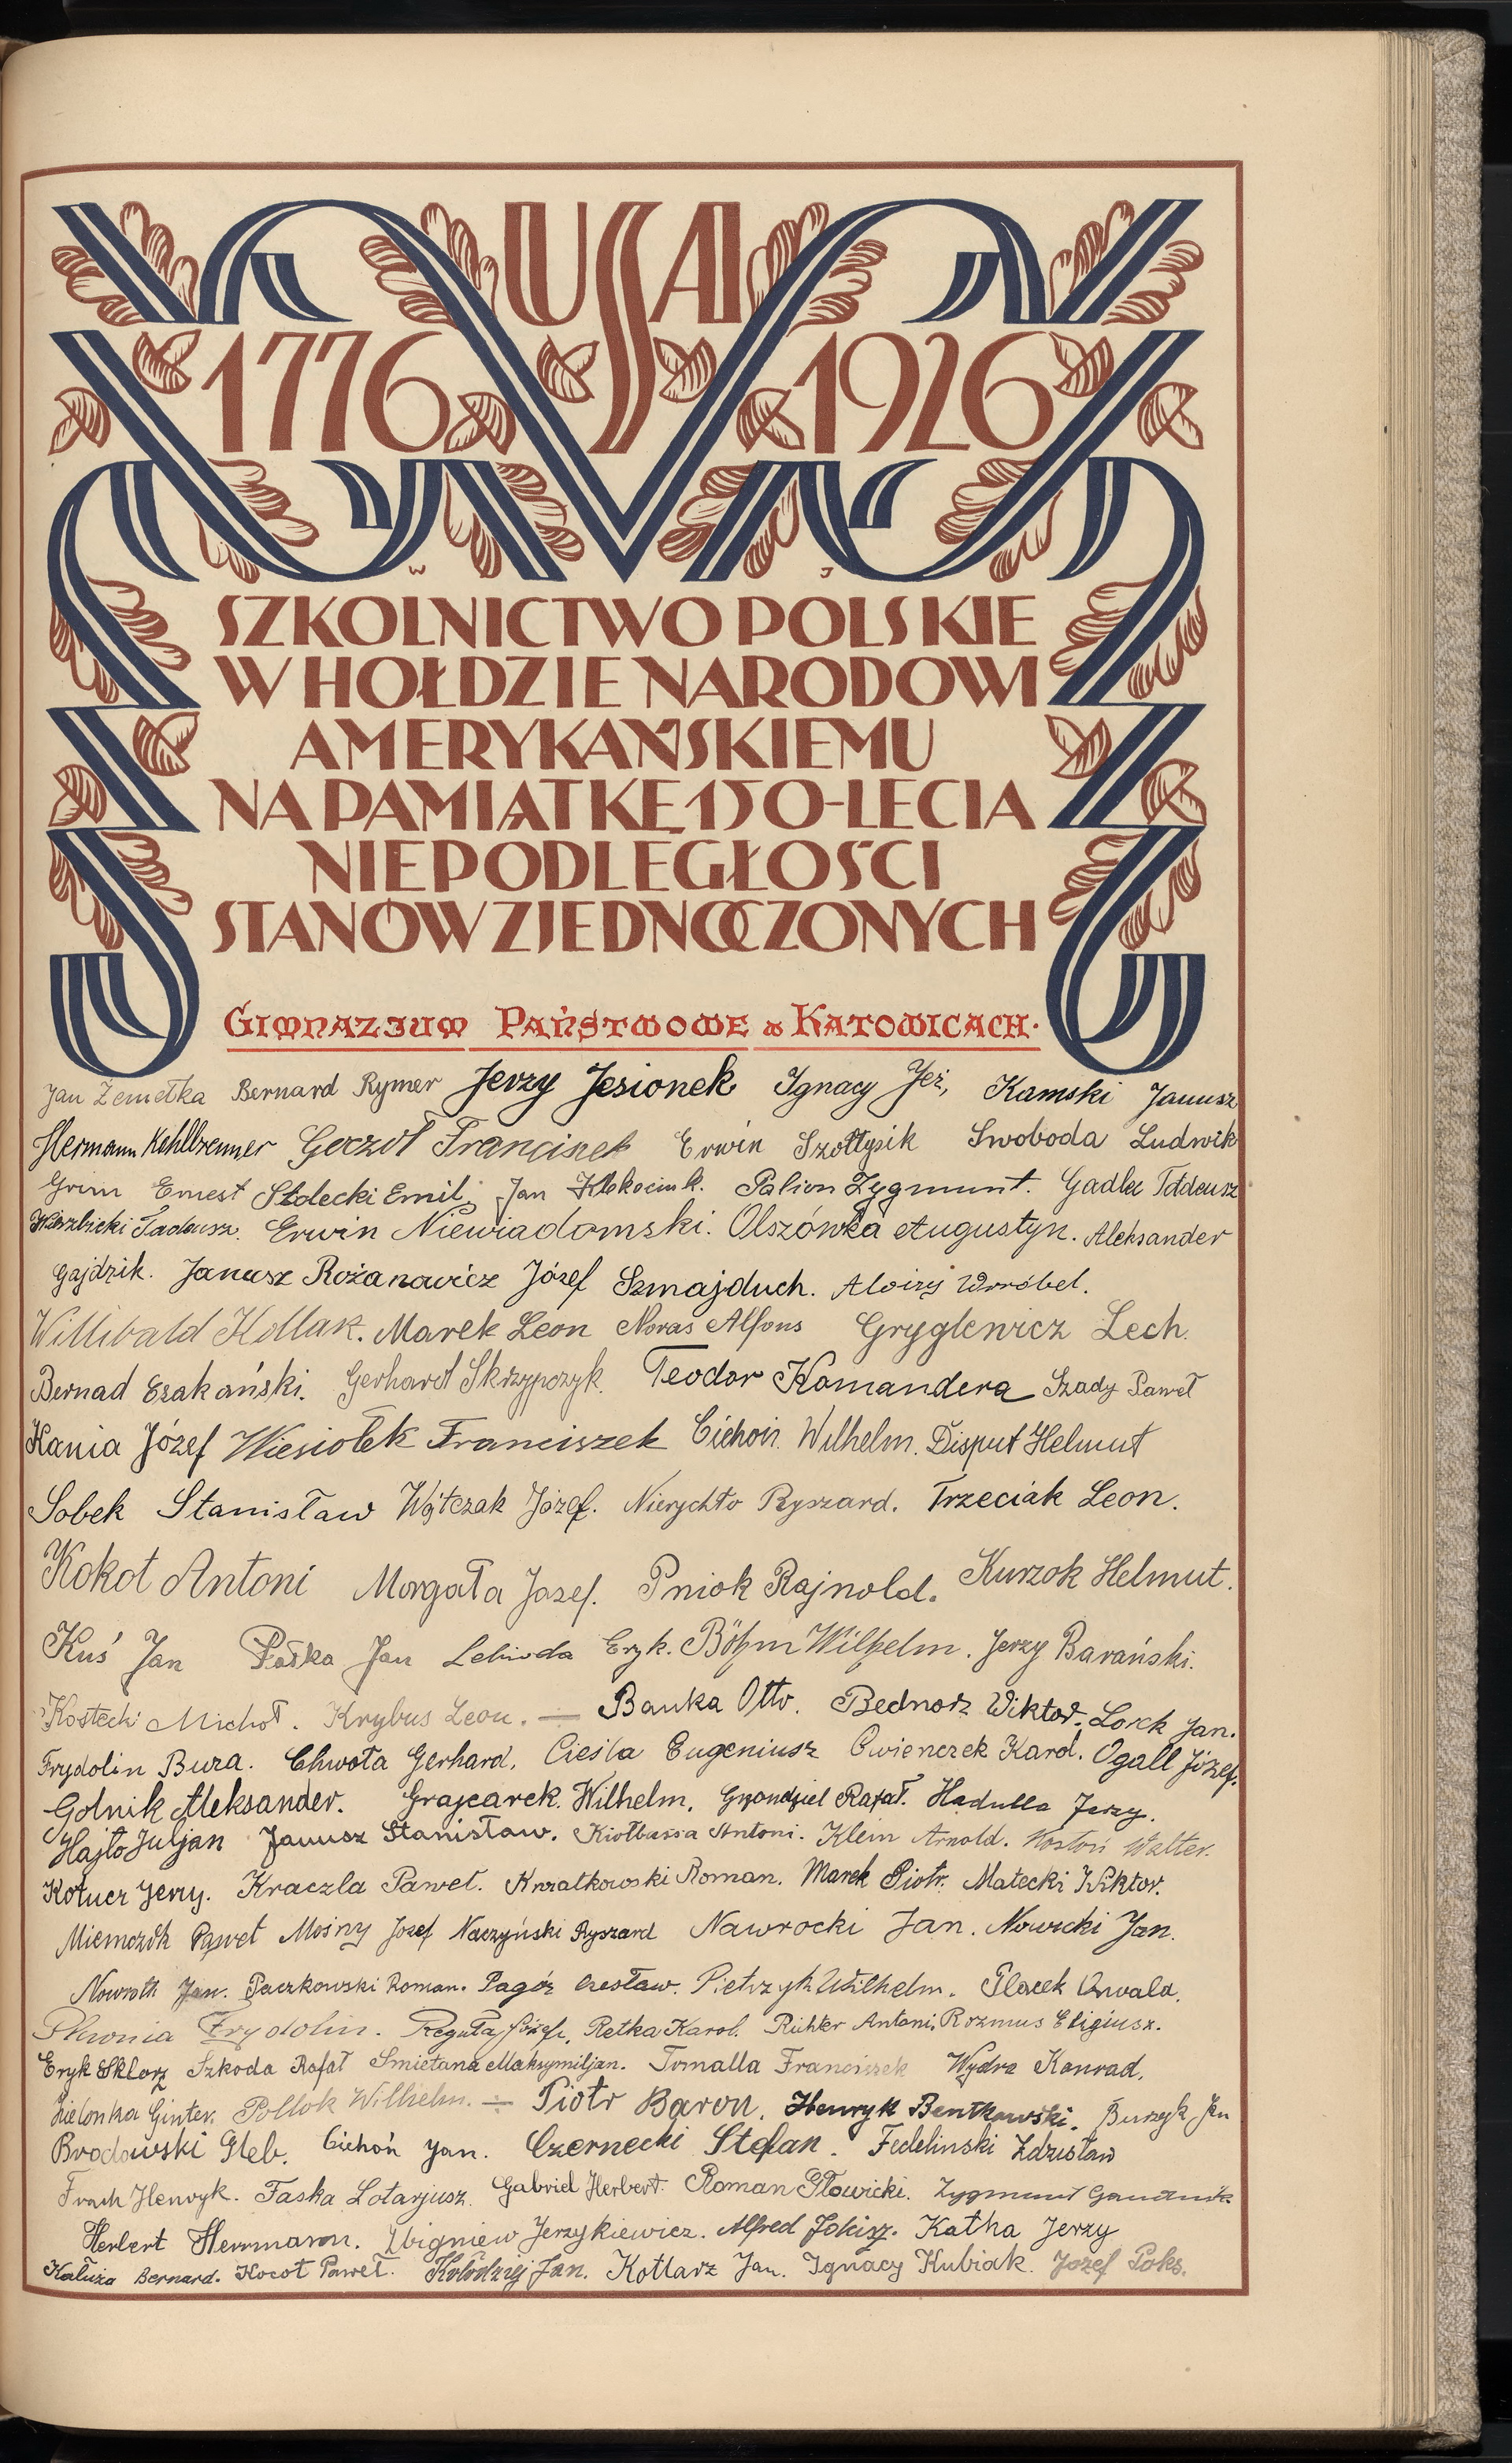 USA
1776 1926
W J
SZKOLNICTWO POLSKIE
W HOŁDZIE NARODOWI
AMERYKAŃSKIEMU
NA PAMIĄTKĘ 150-LECIA
NIEPODLEGŁOŚCI
STANÓW ZJEDNOCZONYCH
GIMNAZJUM PAŃSTWOWE w KATOWICACH.
Jan Żemełka Bernard Rymer Jerzy Jesionek Ignacy Jeż, Kamski Janusz
Hermann Kehlbrenner Goczoł Franciszek Erwin Szołtysik Swoboda Ludwik
Grim Ernest Stolecki Emil. Jan Klekociuk. Palion Zygmunt. Gadla Tadeusz
Tadeusz. Erwin Niewiadomski. Olszówka Augustyn. Aleksander
Gajdzik. Janusz Rożanowicz Józef Szmajduch. Aloizy Wrróbel.
Willibald Kollak. Marek Leon Noras Alfons Gryglewicz Lech.
Bernad Czakański. Gerhard Skrzypczyk. Teodor Komandera Szady Paweł
Kania Józef Wiesiołek Franciszek Cichoń Wilhelm. Disput Helmut
Sobek Stanisław Wojtczak Józef. Nierychło Ryszard. Trzeciak Leon.
Kokot Antoni Morgała Jozef. Pniok Rajnold. Kurzok Helmut.
Kuś Jan Paška Jan Lebioda Eryk. Böhm Wilhelm. Jerzy Barański.
Kostecki Michał. Krybus Leon. — Bauka Otto. Bednorz Wiktor. Lorek Jan.
Frydolin Bura. Chwoła Gerhard. Cieśla Eugeniusz Cwienczek Karol. Ogall Józef.
Golnik Aleksander. Grajcarek Wilhelm. Gwoździel Rafał. Hadulla Jerzy.
Hajto Juljan Janusz Stanisław. Kiołbassa Antoni. Klein Arnold. Kostoń Walter.
Kotucz Jerzy. Kraczla Paweł. Krzalkowski Roman. Marek Piotr. Małecki Wiktor.
Niemczyk Paweł Mośny Józef Naczyński Ryszard Nawrocki Jan. Nowicki Jan.
Nowroth Jan. Paczkowski Roman. Pagór Czesław. Pietrzyk Wilhelm. Placek Oswald.
Plwonia Frydolin. Reguła Józef. Retka Karol. Richter Antoni. Rozmus Eligiusz.
Eryk Sklorz Szkoda Rafał Śmietana Maksymiljan. Tomalla Franciszek Wydra Konrad.
Zielonka Ginter. Pollok Wilhelm. — Piotr Baron. Henryk Bentkowski. Burzyk Jan
Brodowski Gleb. Cichoń Jan. Czernecki Stefan. Fedeliński Zdzisław
Frach Henryk. Faska Lotarjusz. Gabriel Herbert. Roman Głowicki. Zygmunt
Herbert Herrmann. Zbigniew Jerzykiewicz. Alfred Jokisz. Katha Jerzy
Kałuża Bernard. Kocot Paweł. Kołodziej Jan. Kotlarz Jan. Ignacy Kubiak. Jozef Poks.